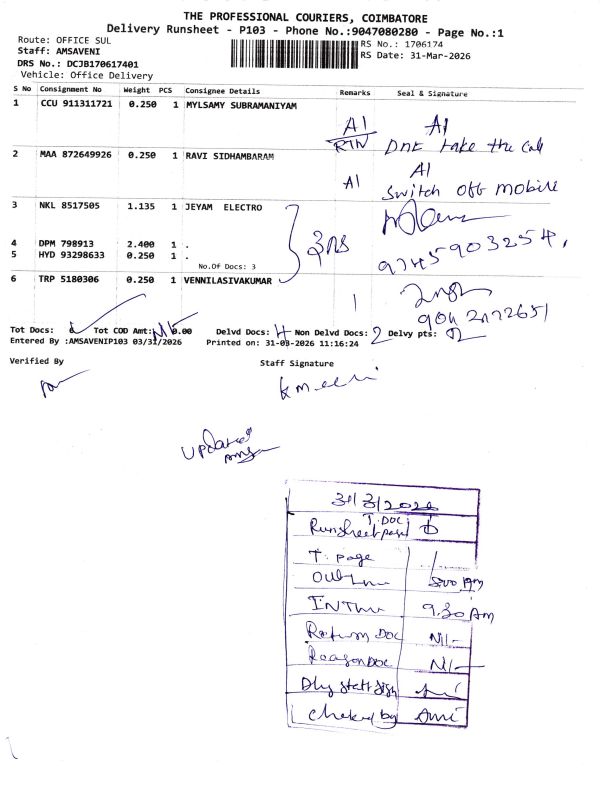 THE PROFESSIONAL COURIERS, COIMBATORE
Delivery Runsheet - P103 - Phone No.:9047080280 - Page No.:1
Route: OFFICE SUL
Staff: AMSAVENI
RS No.: 1706174
DRS No.: DCJB170617401
RS Date: 31-Mar-2026
Vehicle: Office Delivery
S No Consignment No Weight PCS Consignee Details Remarks Seal & Signature
1 CCU 911311721 0.250 1 MYLSAMY SUBRAMANIYAM
AI AI
RTN Dnt take the call
2 MAA 872649926 0.250 1 RAVI SIDHAMBARAM
AI AI
Switch off mobile
3 NKL 8517505 1.135 1 JEYAM ELECTRO
4 DPM 798913 2.400 1 .
5 HYD 93298633 0.250 1 .
9745903254.
No.Of Docs: 3
6 TRP 5180306 0.250 1 VENNILASIVAKUMAR
904 2172651
Tot Docs: Tot COD Amt: 0.00 Delvd Docs: 4 Non Delvd Docs: 2 Delvy pts:
Entered By :AMSAVENIP103 03/31/2026 Printed on: 31-03-2026 11:16:24
Verified By Staff Signature
Updated
31/3/2026
T. DOC
Runsheet page
T. page
Out
5.00 pm
IN Time 9.30 AM
Return DOC Nil-
Reason DOC Nil-
Dly staff sign
Checked by Ami